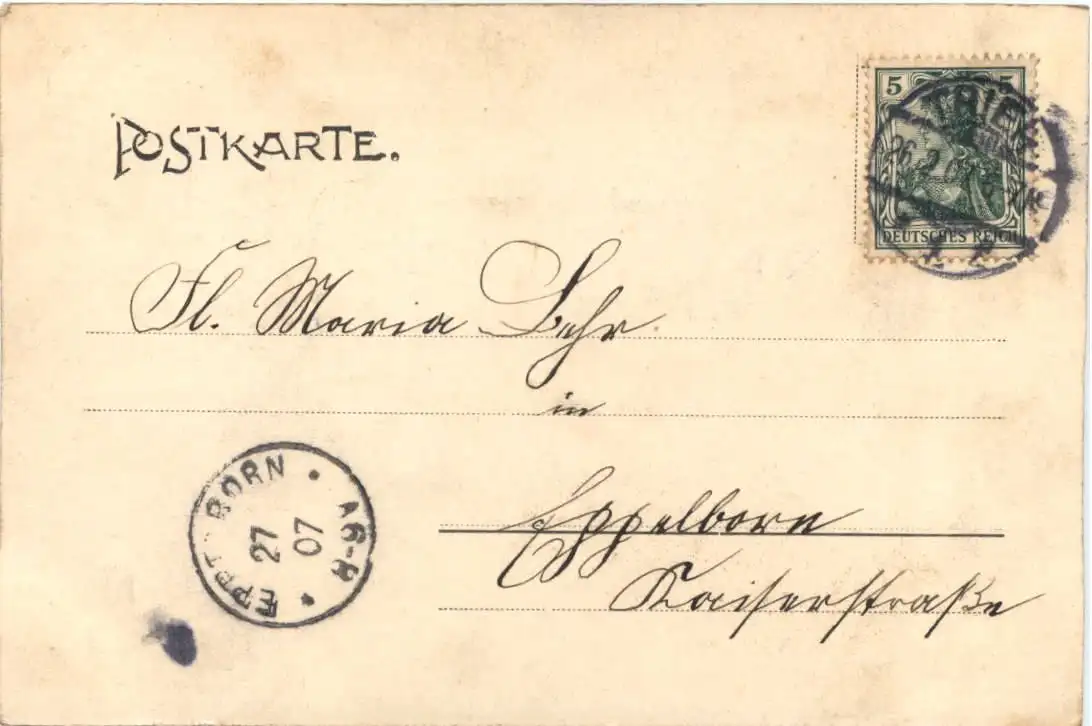 POSTKARTE.
5 5
TRIER
26.2.07
DEUTSCHES REICH
Fl. Maria Lehr
in
Eppelborn
Kaiserstraße
EPPELBORN
27
07